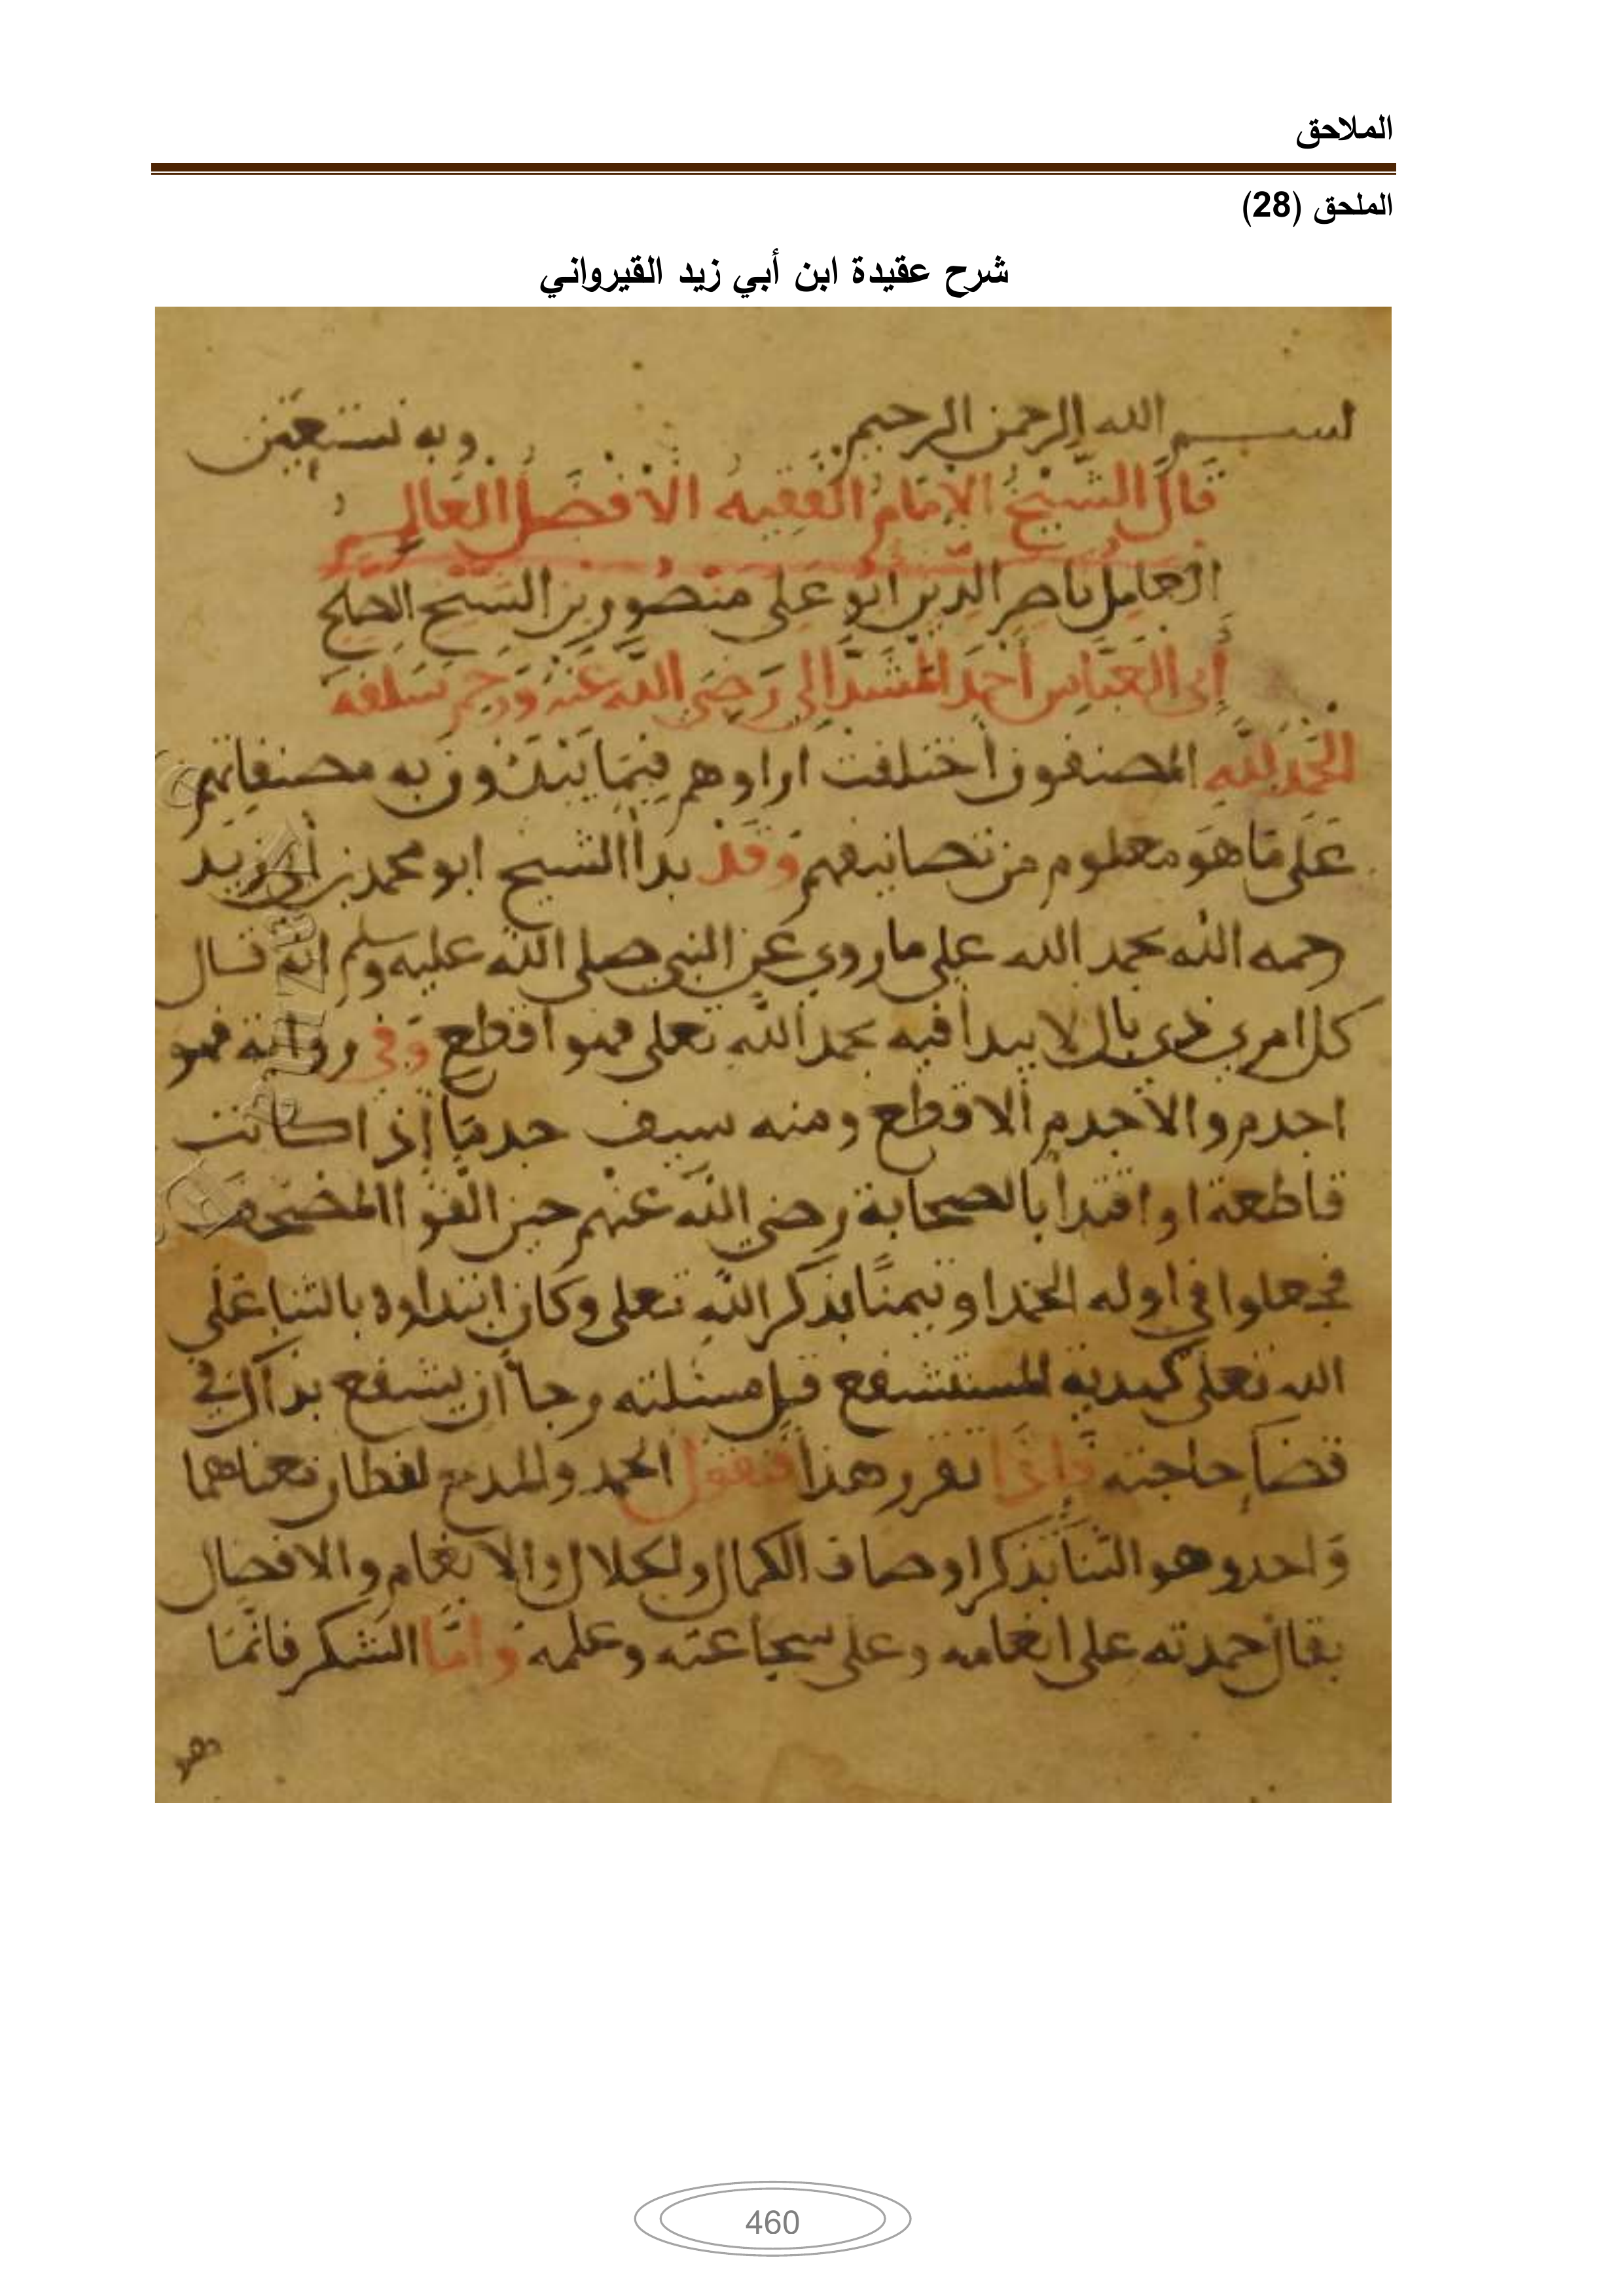 الملاحق
الملحق (28)
شرح عقيدة ابن أبي زيد القيرواني
بسم الله الرحمن الرحيم وبه نستعين
قال الشيخ الامام الفقيه الافضل العالم
العامل ناصر الدين ابو على منصور بن الشيخ الصلح
أبي العباس أحمد المشدالي رضي الله عنه ورحم سلفه
الحمد لله المصنفون أختلفت اراوهم فيما يبتدون به مصنفاتهم
على ما هو معلوم من تصانيفهم وقد بدأ الشيخ ابو محمد بن أبي زيد
رحمه الله بحمد الله على ما روي عن النبي صلى الله عليه وسلم انه قال
كل امري ذي بال لا يبدأ فيه بحمد الله تعلى فهو اقطع وفي رواية فهو
اجدم والاجدم الاقطع ومنه سيف جدما إذا كانت
قاطعة او اقتدا بالصحابة رضي الله عنهم حين الفوا المصحف
فجعلوا في اوله الحمد او تيمنا بذكر الله تعلى وكان ابتداوه بالثنا على
الله تعلى كهدية المستشفع قبل مسئلته رجا أن يشفع بدالك في
قضا حاجته فاذا تقرر هذا فنقول الحمد والمدح لفظان معناهما
واحد وهو الثنا بذكر اوصاف الكمال والجلال والانعام والافضال
يقال حمدته على انعامه وعلى شجاعته وعلمه واما الشكر فانما
هو
460